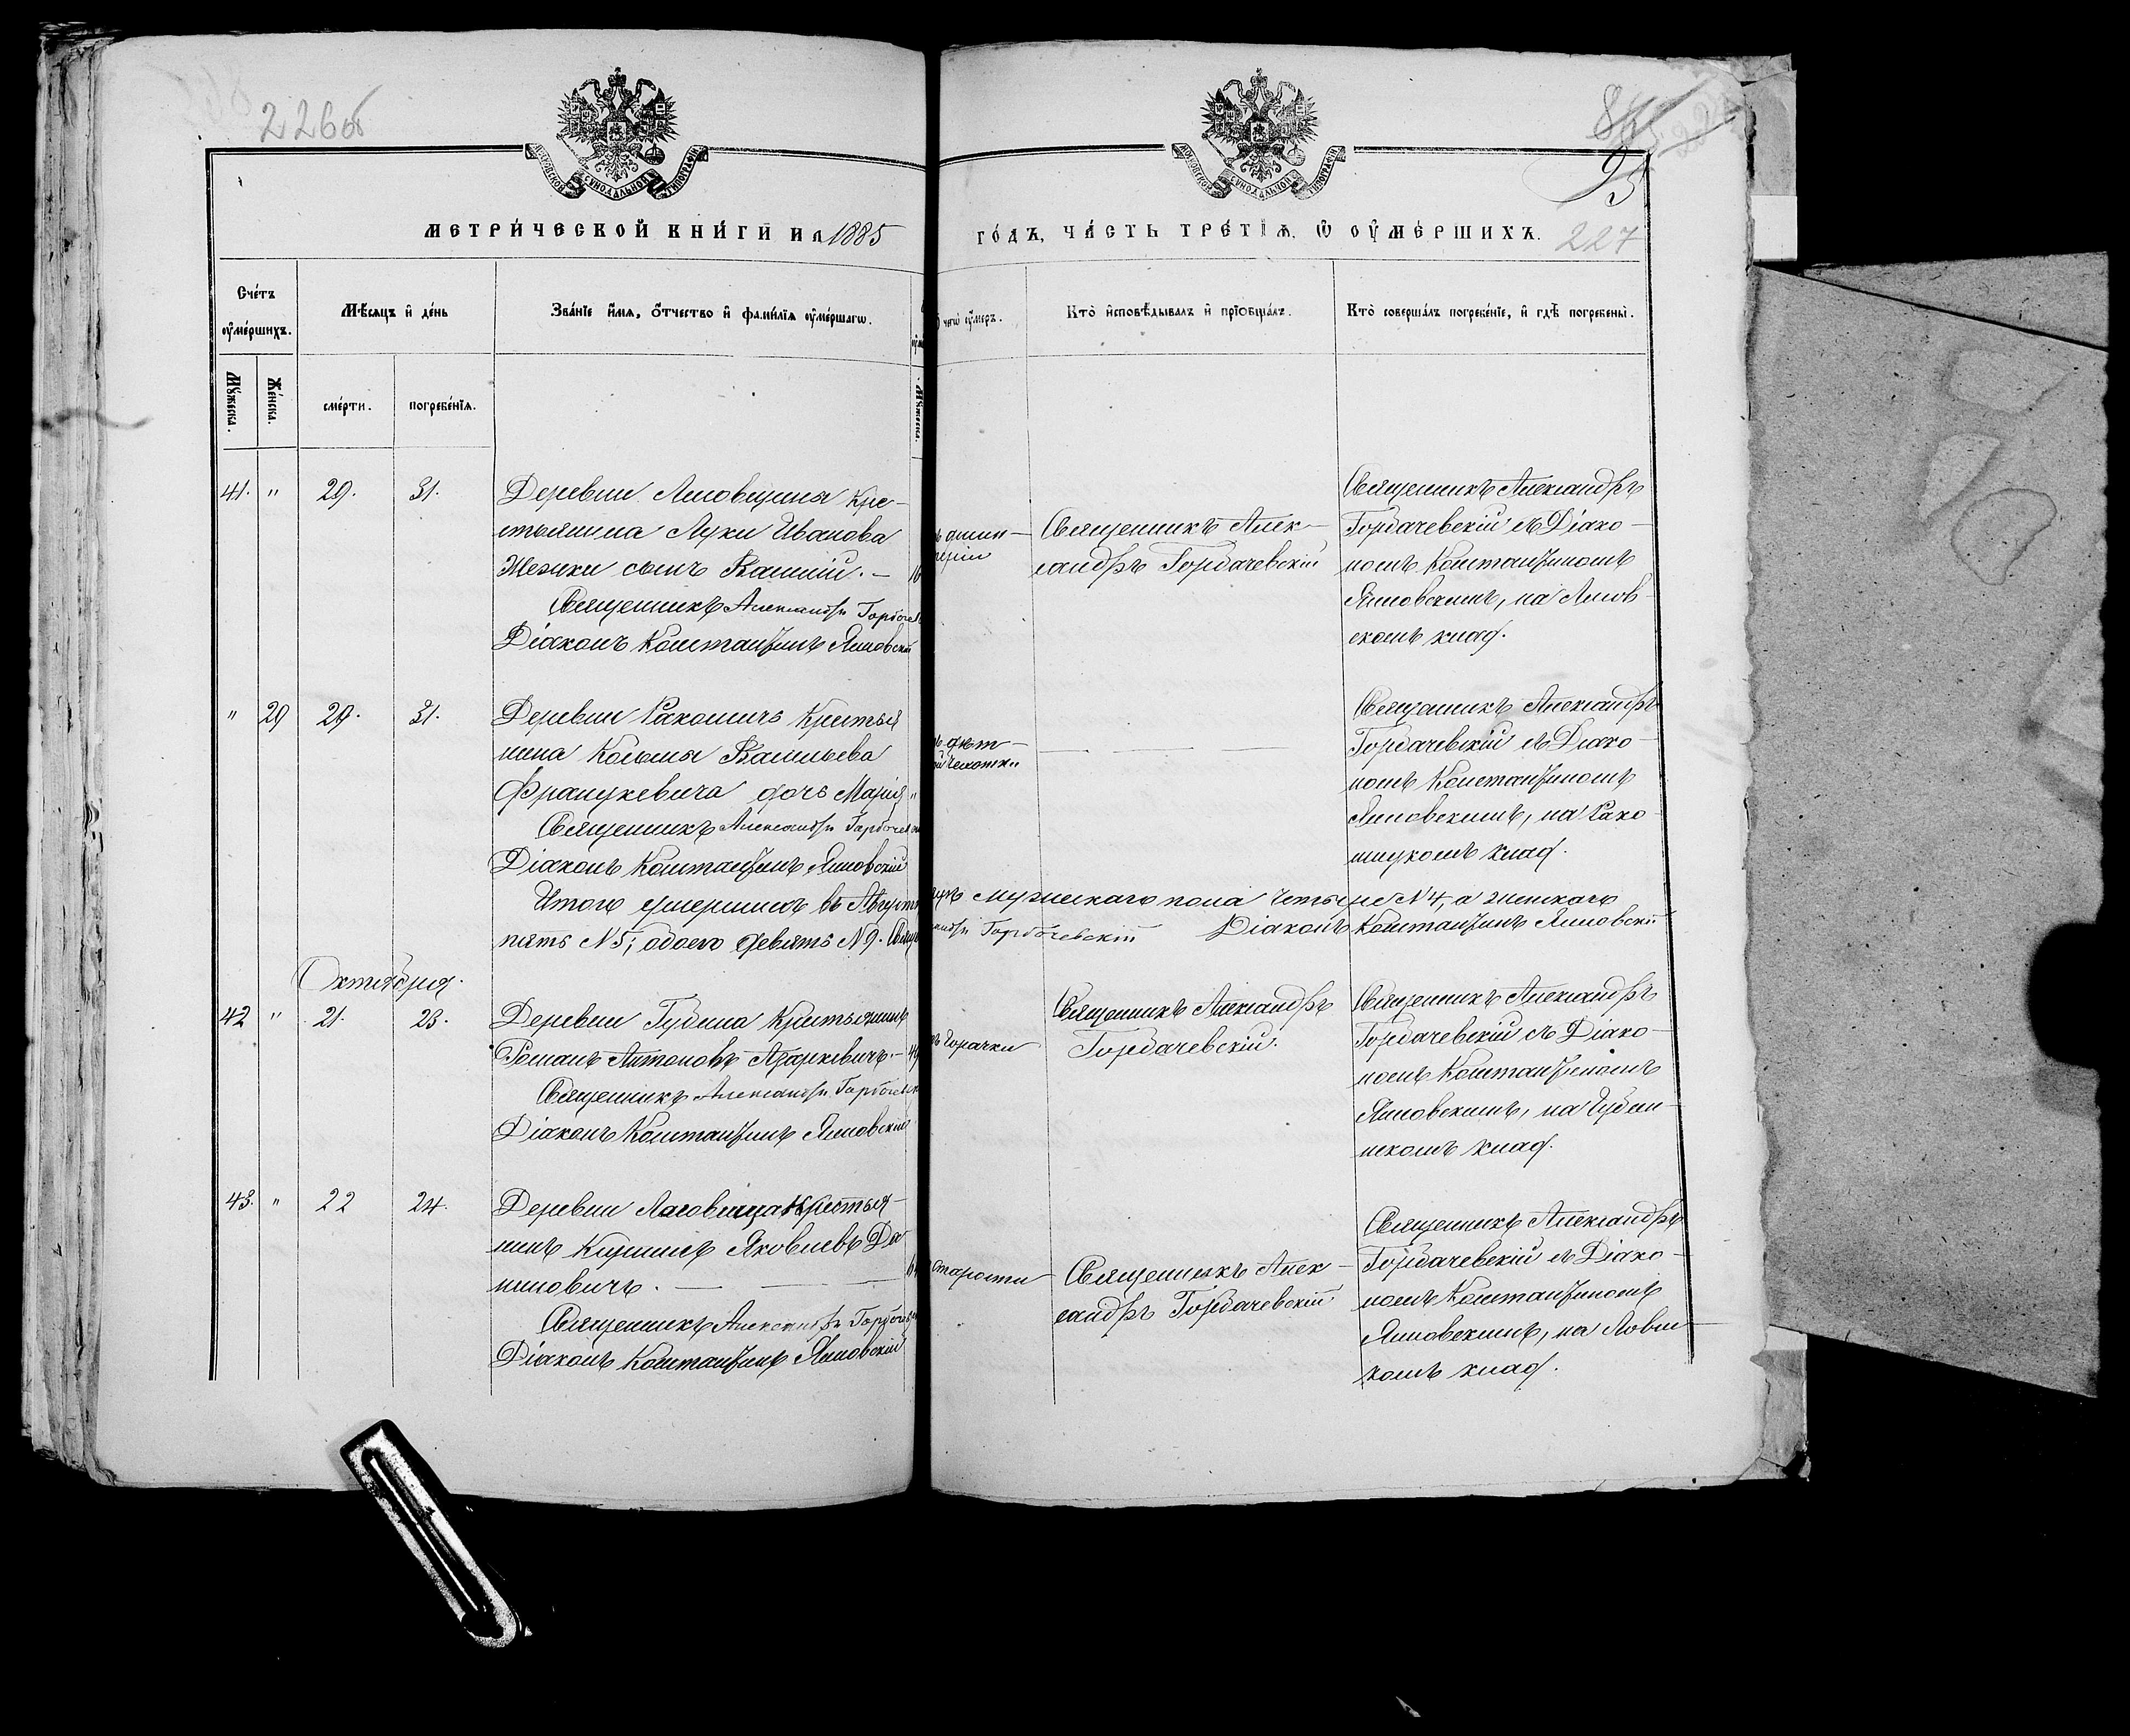 226об
95
227
МЕТРИ́ЧЕСКОЙ КНИ́ГИ НА 1885 ГО́ДЪ, ЧА́СТЬ ТРЕ́ТІѦ, Ѡ ОУМЕ́РШИХЪ.
Сче́тъ оуме́ршихъ.
Мꙋ́жеска.
Же́нска.
Мѣ́сяцъ и де́нь
сме́рти.
погребе́нїѧ.
Зва́нїе и́мѧ, о́тчество и фами́лїѧ оуме́ршагѡ.
чегѡ̀ оу́меръ.
Кто̀ исповѣ́дывалъ и прїобща́лъ.
Кто̀ соверша́лъ погребе́нїе, и гдѣ̀ погребены̀.
41. " 29. 31.
Деревни Кре-
стьянина Луки Иванова
сынъ
Священникъ Александръ
Діаконъ Константинъ Яновскій
Священникъ Алек-
сандръ Горбачевскій
Священникъ Александръ
Горбачевскій съ Діако-
номъ Константиномъ
Яновскимъ, на
скомъ клад.
" 29 29. 31.
Деревни Рахомичъ Крестья
нина Козьмы Васильева
Францкевича дочь Марія
Священникъ Александръ
Діаконъ Константинъ Яновскій
чехотки
Священникъ Александръ
Горбачевскій съ Діако-
номъ Константиномъ
Яновскимъ, на Рахо-
мицкомъ клад.
Итого умершихъ въ мужескаго пола четыре №4, а женскаго
пять №5; обоего девять №9. Горбачевскій Діаконъ Константинъ Яновскій
Октября.
42 " 21. 23.
Деревни Губина Крестьянинъ
Романъ Антоновъ Азаркевичъ.
Священникъ Александръ
Діаконъ Константинъ Яновскій
горячки
Священникъ Александръ
Горбачевскій.
Священникъ Александръ
Горбачевскій съ Діако-
номъ Константиномъ
Яновскимъ, на Губин-
скомъ клад.
43. " 22 24.
Деревни Крестья-
нинъ Яковлевъ Да
ниловичъ.
Священникъ Александръ
Діаконъ Константинъ Яновскій
старости
Священникъ Алек-
сандръ Горбачевскій
Священникъ Александръ
Горбачевскій съ Діако-
номъ Константиномъ
Яновскимъ, на
комъ клад.